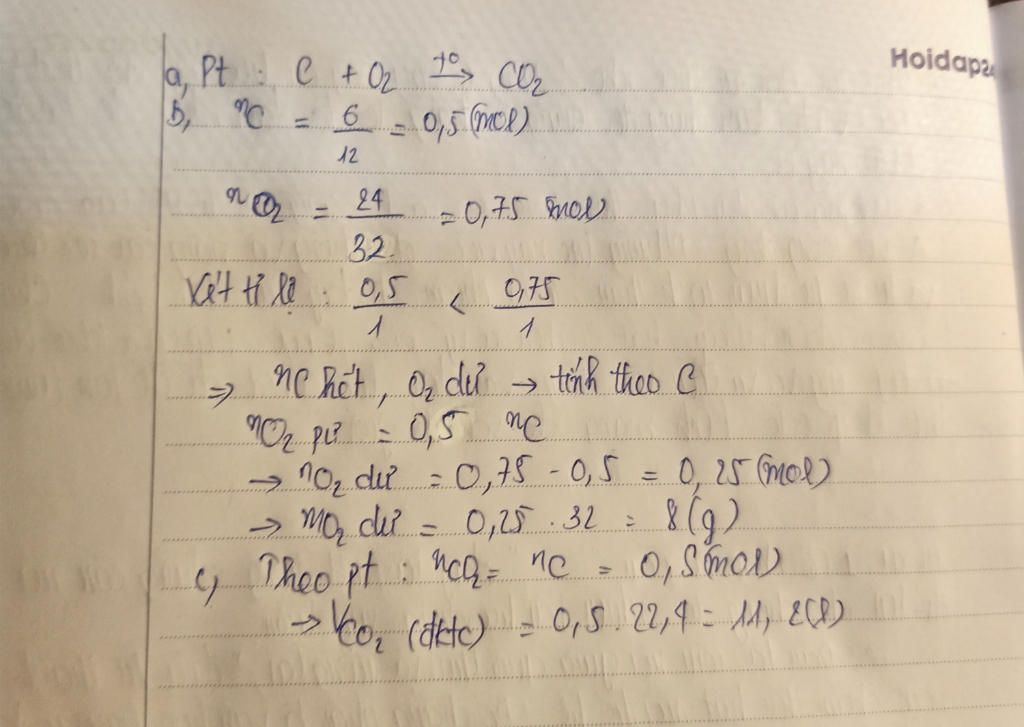 Hoidap24
a, Pt : C + O2 t° → CO2
b, nC = 6/12 = 0,5 (mol)
nO2 = 24/32 = 0,75 mol
Xét tỉ lệ : 0,5/1 < 0,75/1
⇒ nC hết, O2 dư → tính theo C
nO2 pư = 0,5 nC
→ nO2 dư = 0,75 - 0,5 = 0,25 (mol)
→ mO2 dư = 0,25 . 32 = 8 (g)
c, Theo pt : nCO2 = nC = 0,5 (mol)
→ VCO2 (đktc) = 0,5 . 22,4 = 11,2 (l)